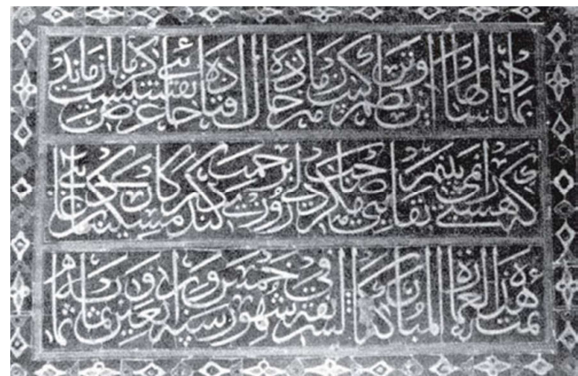 بماند سالها این نظم و ترتیب ز ما هر ذره خاک افتاده جائی غرض نقشیست کز ما باز ماند
که هستی را نمی بینم بقائی مگر صاحب دلی روزی برحمت کند کار مسکین دعائی
تمت هذه العمارة المباركة الشريفة في شهور سنة خمس واربعين وثمانمائة